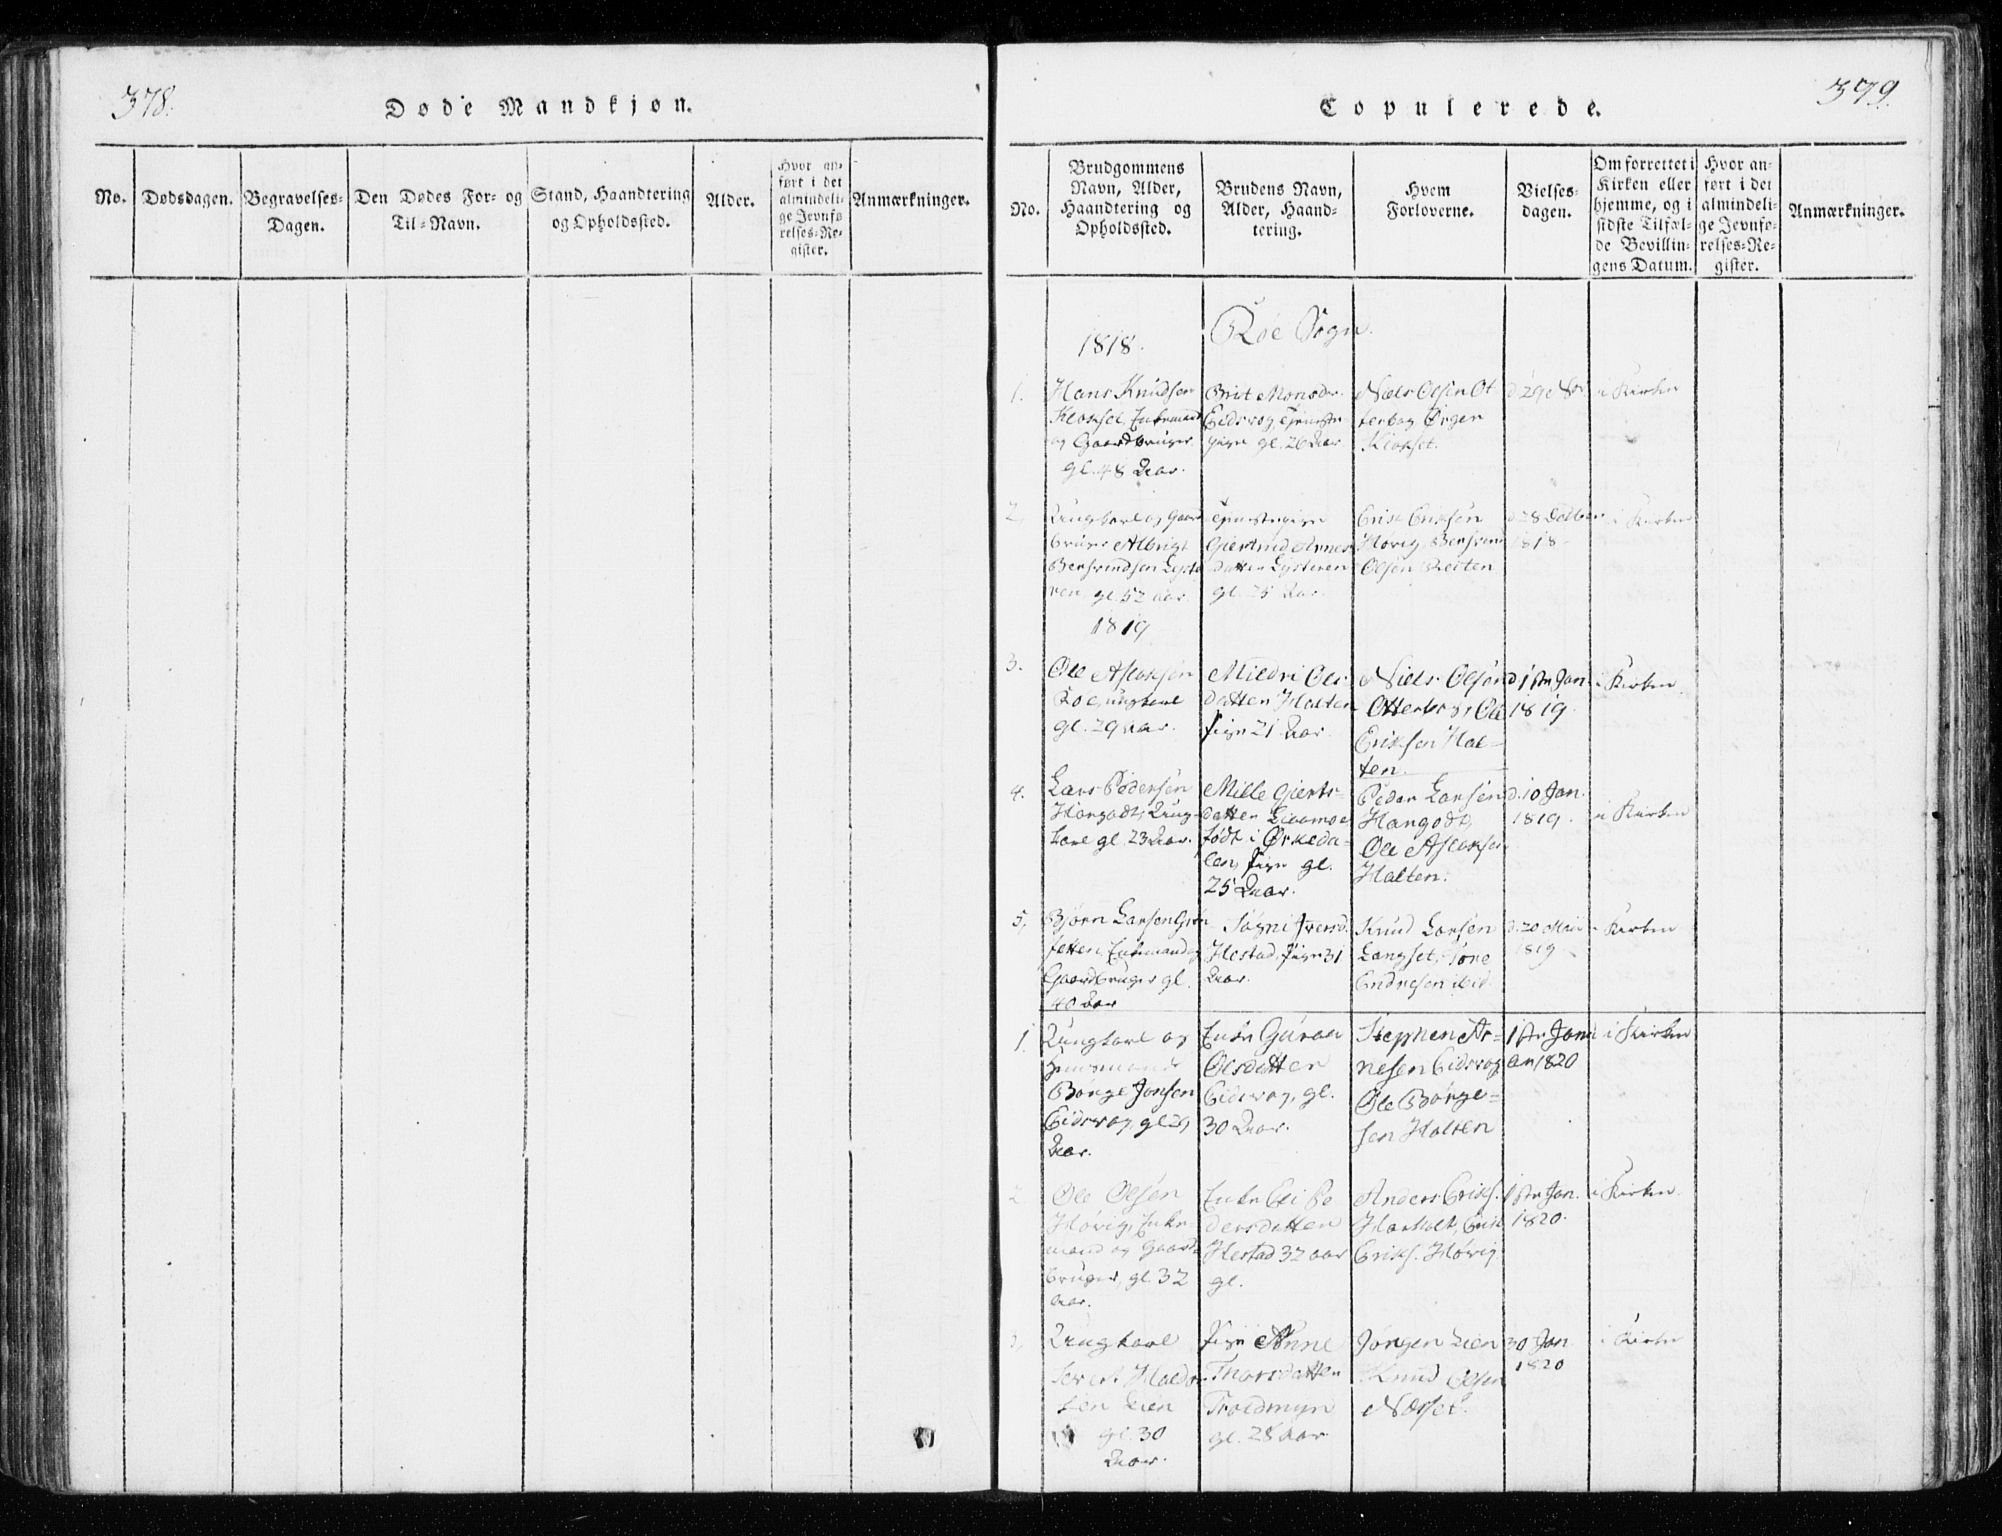 378.
Døde Mandkjøn.
No.
Dødsdagen.
Begravelses-
Dagen.
Den Dødes For- og
Til-Navn.
Stand, Haandtering
og Opholdssted.
Alder.
Hvor an-
ført i det
almindeli-
ge Jevnfø-
relses-Re-
gister.
Anmærkninger.
379.
Copulerede.
No.
Brudgommens
Navn, Alder,
Haandtering og
Opholdssted.
Brudens Navn,
Alder, Haand-
tering.
Hvem
Forloverne.
Vielses-
dagen.
Om forrettet i
Kirken eller
hjemme, og i
sidste Tilfæl-
de Bevillin-
gens Datum.
Hvor an-
ført i det
almindeli-
ge Jevnfø-
relses-Re-
gister.
Anmærkninger.
1818.
Röe Sogn.
1.
Hans Knudsen
Enkemand
og Gaardbruger
gl. 48 Aar.
Brit Monsdr.
Eidsvog, Tjeneste
pige gl. 26 Aar
Niels Olsen Ot
terbog Örgen
i Kirken
2.
Ungkarl og Gaard
bruger Albrigt
gl. 52 aar.
Tjenestepige
Giertrud Arnes
datter
gl. 25 Aar.
Erik Eriksen
Hovig
Olsen
d 28
1818
i Kirken
1819
3.
Ole Aslaksen
Roe, ungkarl
gl. 29 aar.
Mildri Ols
datter Halten
Pige 21 Aar.
Niels Olsen
Otterbog, Ole
Eriksen Hal-
ten.
d 1ste Jan.
1819.
i Kirken
4.
Lars Pedersen
Ung-
karl gl. 23 Aar.
Mille Gierts-
datter
født i Ørkeda-
len, Pige gl.
25 Aar.
Peder Larsen
Ole Aslaksen
Halten.
d. 10 Jan.
1819.
i Kirken
5,
Björn Larsen
Enkemand og
Gaardbruger gl.
40 Aar
Iversd.
Hestad, Pige 31
Aar.
Knud Larsen
Langset,
Endresen ibid.
d. 20 Mai
1819
i Kirken
1.
Ungkarl og
Huusmand
Börge Jonsen
Eidsvog, gl.
Aar.
Enke Guroe
Olsdatter
Eidsvog, gl.
30 Aar.
Stephen Ar-
nesen Eidsvog
Ole Börge-
sen Halten
1ste Janu
ar 1820
i Kirken
2
Ole Olsen
Hövig, Enke-
mand og Gaard-
bruger, gl. 32
Aar.
Enke Eli Pe
dersdatter
Hestad 32 aar
gl.
Anders Eriks.
Erik
Eriks. Hövig
1ste Jan.
1820.
i Kirken
3,
Ungkarl
Sivert Haldor
sen Lien
gl. 30
Aar.
Pige Anne
Thorsdatter
Troldmyr
gl. 28 Aar
Jörgen Lien
Knud Olsen
Nerset.
30 Jan
1820
i Kirken